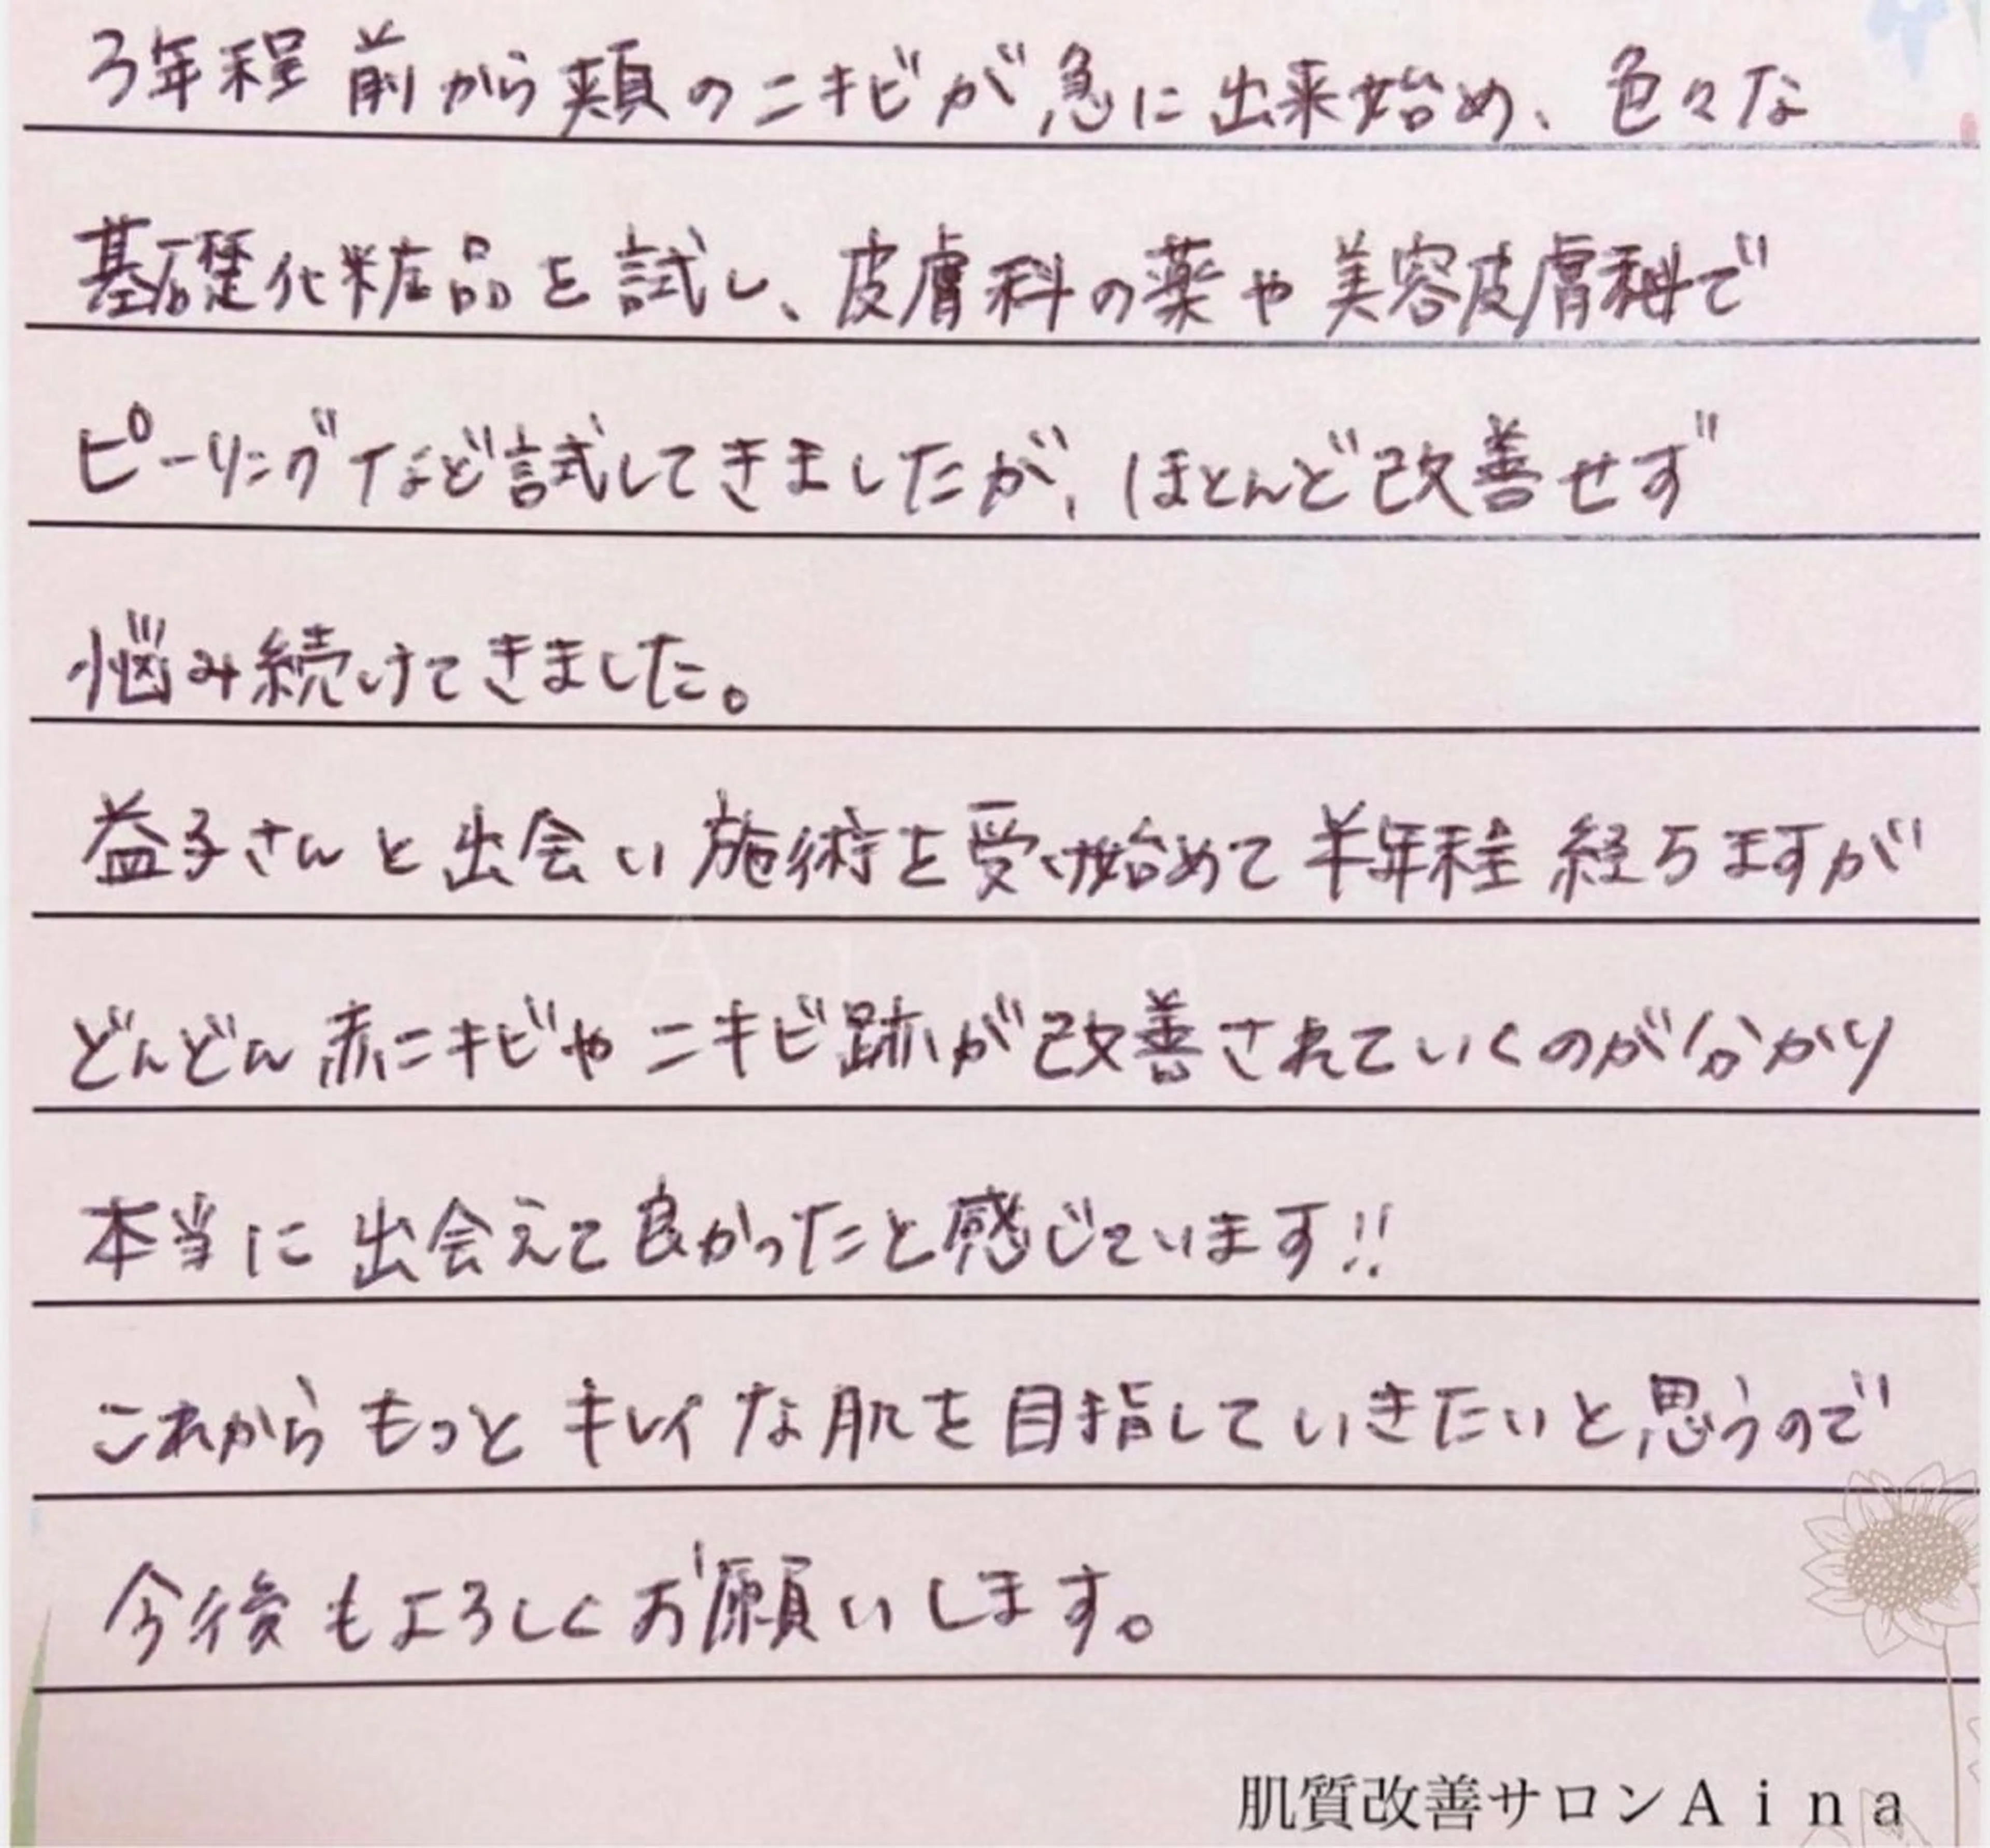 3年程前から頬のニキビが急に出来始め、色々な
基礎化粧品を試し、皮膚科の薬や美容皮膚科で
ピーリングなど試してきましたが、ほとんど改善せず
悩み続けてきました。
益子さんと出会い施術を受け始めて半年程経ちますが
どんどん赤ニキビやニキビ跡が改善されていくのが分かり
本当に出会えて良かったと感じています!!
これからもっとキレイな肌を目指していきたいと思うので
今後もよろしくお願いします。
肌質改善サロンAina